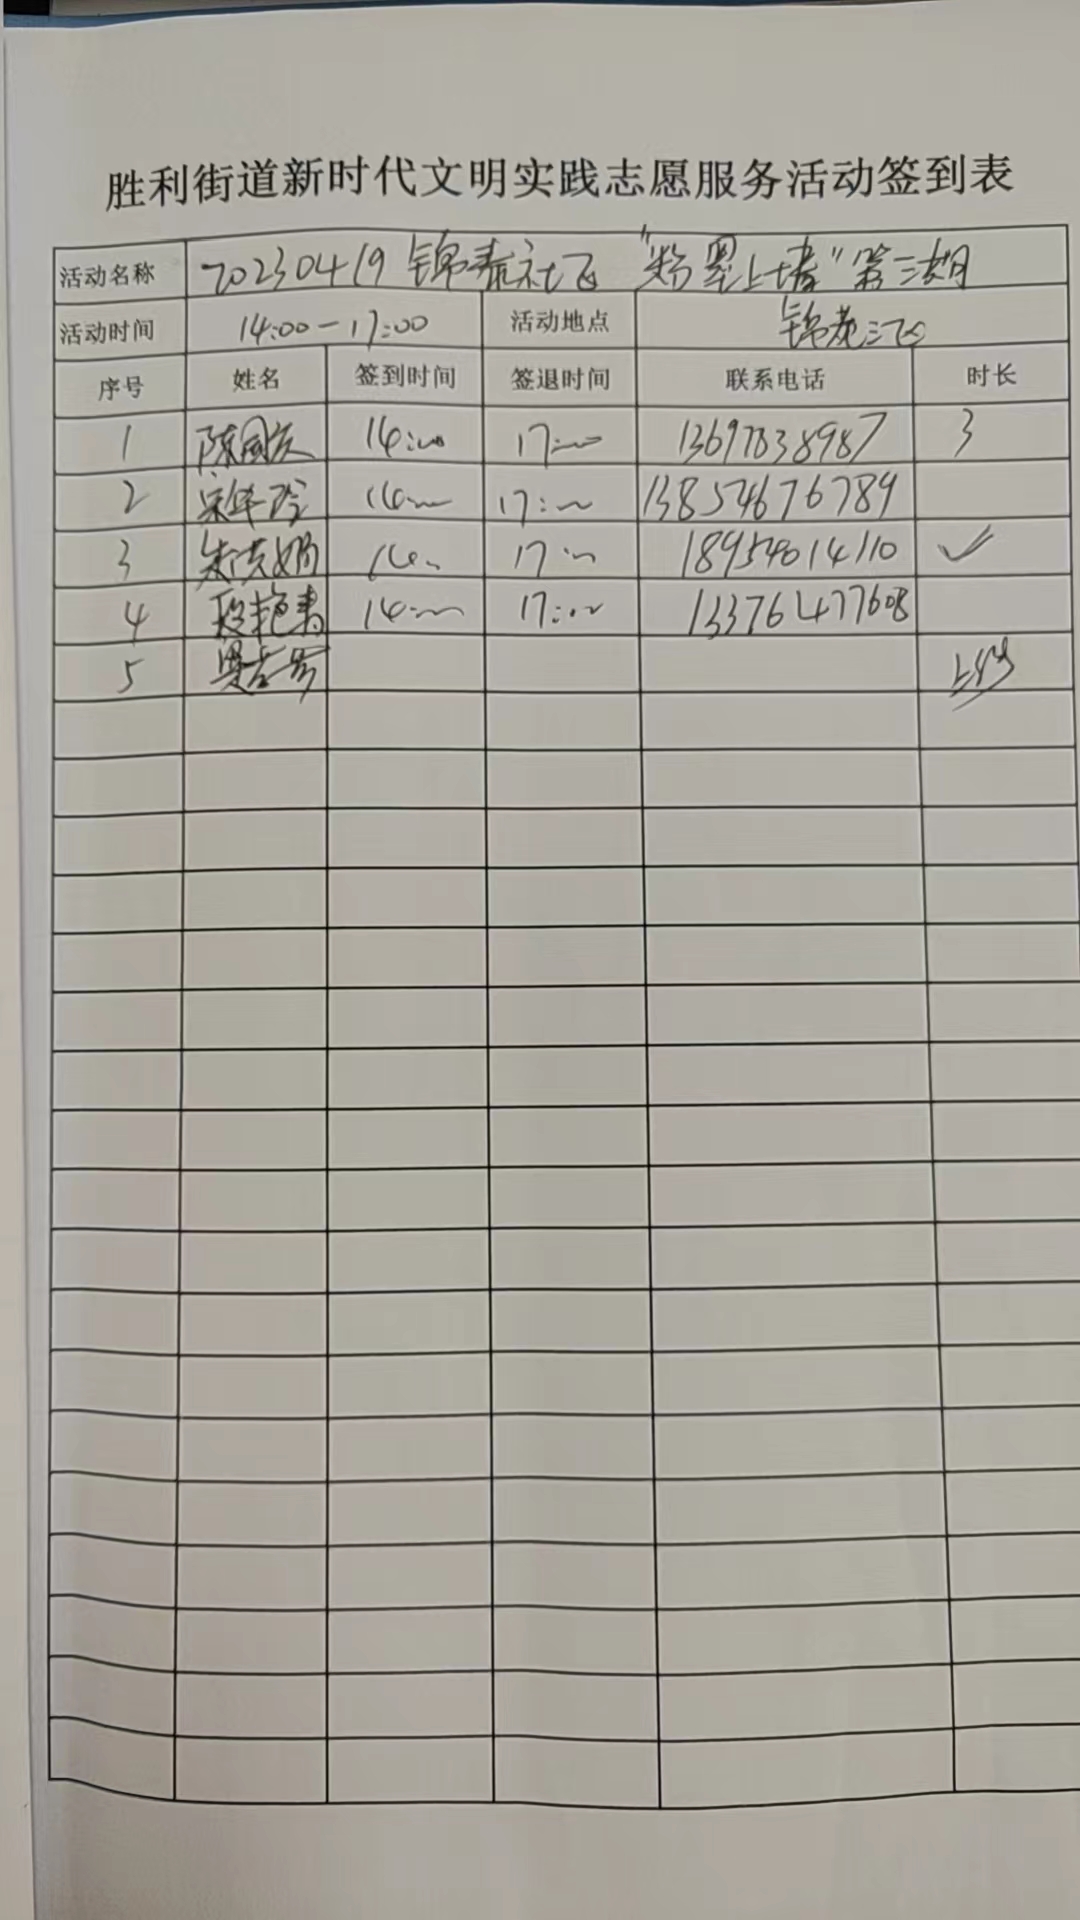 胜利街道新时代文明实践志愿服务活动签到表
活动名称 20230419 锦春社区 "粉墨上墙" 第三期
活动时间 14:00-17:00 活动地点 锦苑三区
序号 姓名 签到时间 签退时间 联系电话 时长
1 陈国庆 14:00 17:00 13697838987 3
2 宋华玲 14:00 17:00 13854676789
3 朱洪娟 14:00 17:00 18954014110 ✓
4 段艳青 14:00 17:00 13376477608
5